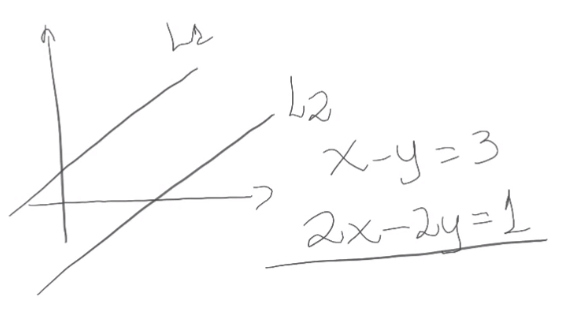 L1
L2
x-y=3
2x-2y=1